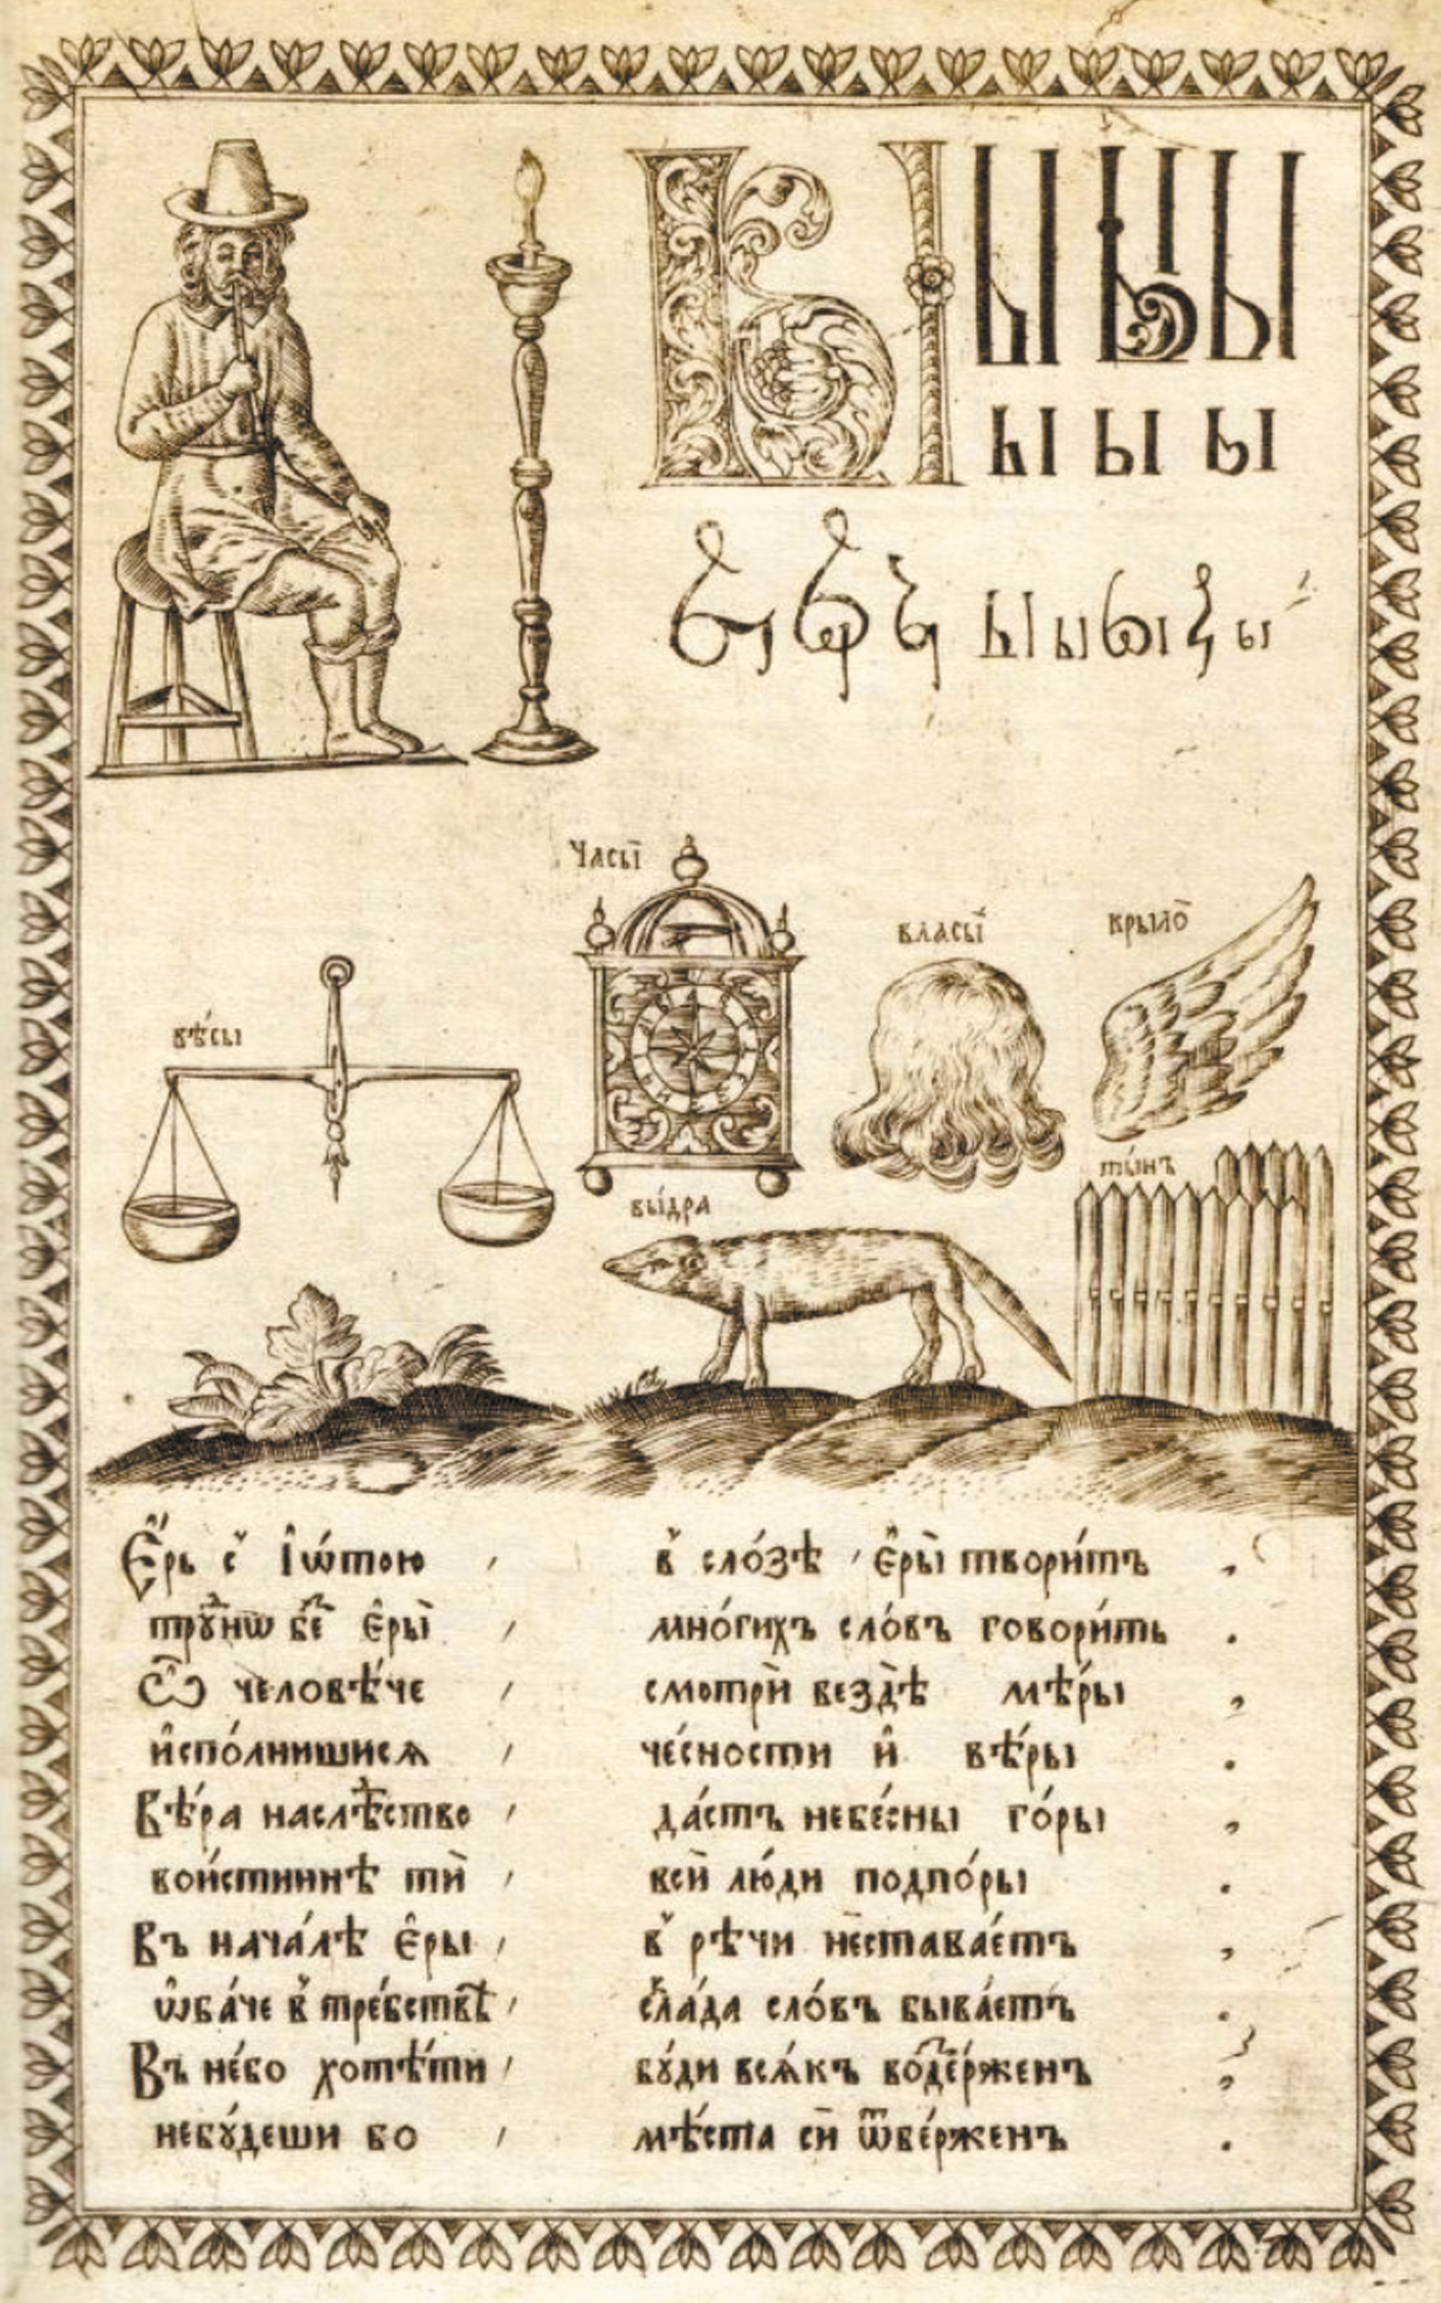 Ы Ы Ы Ы
ы ы ы
ы ы ы ы ы ы ы ы
часы̀
власы̀
крыло̀
вѣ́сы
ты́нъ
вы́дра
Е҆́рь с̾ і҆ѡ́тою , в̾ сло́зѣ , є҆ры̀ твори́тъ ,
є҆ры̀ , мно́гихъ сло́въ говори́ть .
Ѽ человѣ́че , смотрѝ вездѣ̀ мѣ́ры ,
и҆спо́лнишися , че́сности и҆ вѣ́ры .
Вѣ́ра наслѣ́ство , да́стъ небе́сны го́ры ,
вои́стиннѣ тѝ , всѝ лю́ди подпо́ры .
Въ нача́лѣ є҆ры , в̾ рѣ́чи неставае́тъ ,
ѻ҆ба́че в̾ тре́бствѣ , скла́да сло́въ быва́етъ .
Въ не́бо хотѣ́ти , бꙋ́ди вся́къ воде́рженъ ,
небꙋ́деши бо , мѣ́ста сѝ ѿве́рженъ .